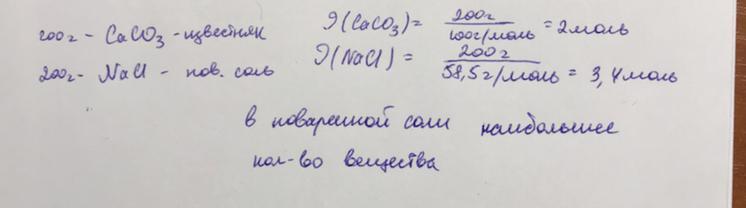 200г - CaCO₃ - известняк
200г - NaCl - пов. соль
ϑ(CaCO₃) = 200г / 100г/моль = 2 моль
ϑ(NaCl) = 200г / 58,5г/моль = 3,4 моль
в поваренной соли наибольшее
кол-во вещества